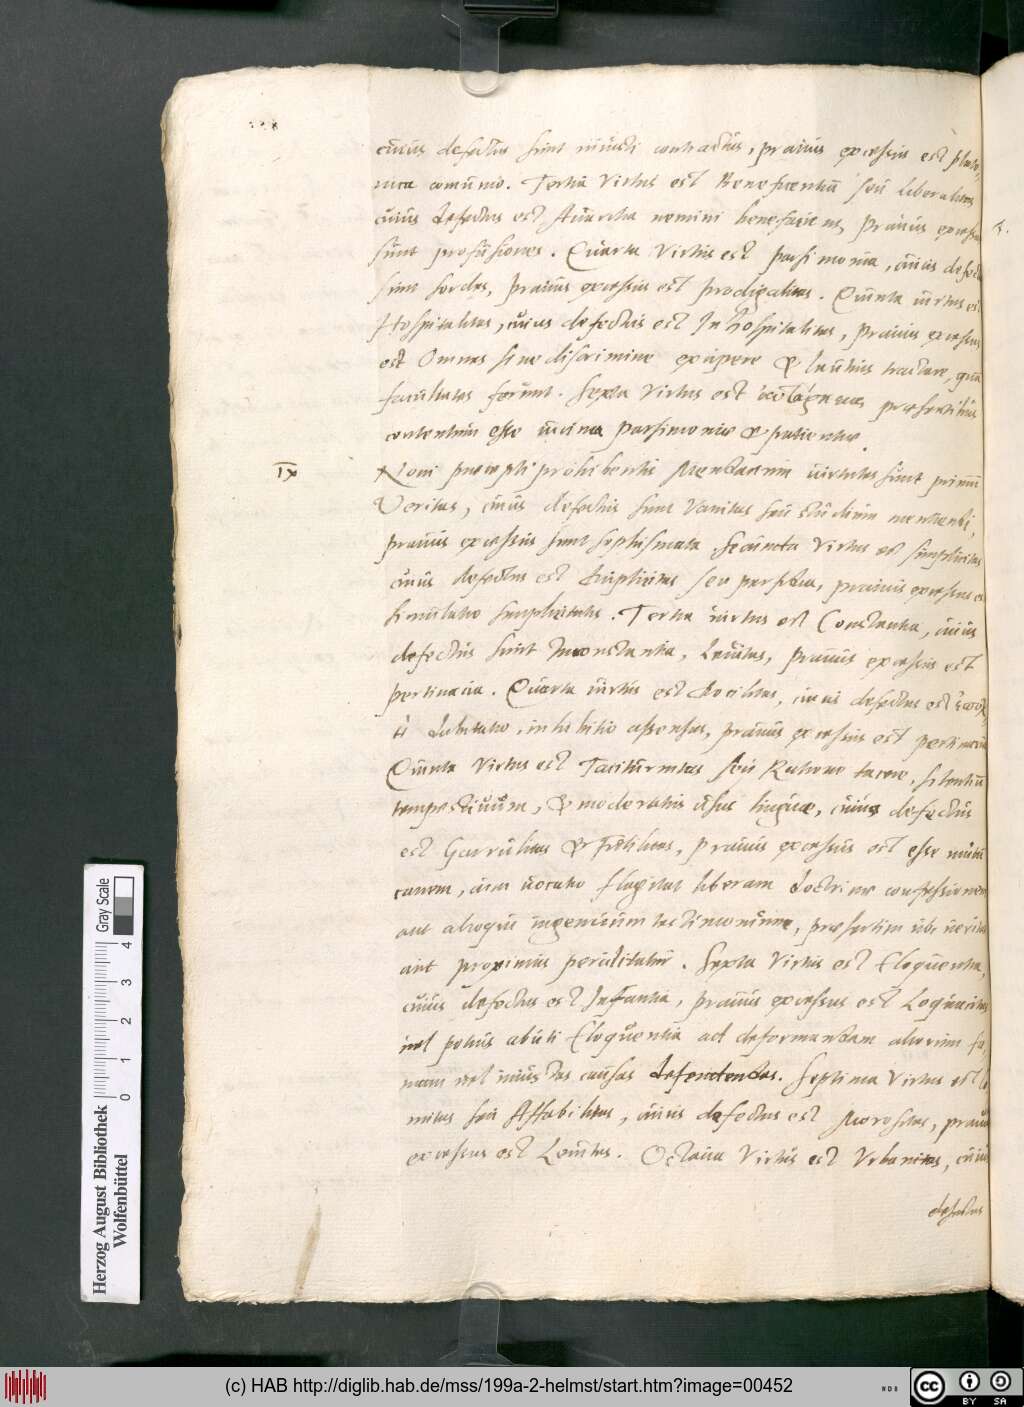 cuius defectus sunt iniusti contractus, prauus excessus est plato,
nica comunio. Tertia Virtus est Beneficentia seu liberalitas
cuius defectus est Auaritia nemini benefaciens, Prauus excessus
sunt profusiones. Quarta Virtus est parsimonia, cuius defectus
sunt sordes, Prauus excessus est prodigalitas. Quinta uirtus est
Hospitalitas, cuius defectus est Inhospitalitas, prauus excessus
est Omnes sine discrimine excipere & lautius tractare, quã
facultates ferunt. Sexta Virtus est praesentibus
contentum esse uicina parsimoniae & patientiae.
IX
Noni praecepti prohibentis Mendacium uirtutes sunt primũ
Veritas, cuius defectus sunt Vanitas seu studium mentiendi,
prauus excessus sunt sophismata. Secunda Virtus est simplicitas
cuius defectus est duplicitas seu perfidia, prauus excessus est
simulatio simplicitatis. Tertia uirtus est Constantia, cuius
defectus sunt Inconstantia, Leuitas, prauus excessus est
pertinacia. Quarta uirtus est docilitas, cuius defectus est
dubitatio, inhibitio assensus, prauus excessus est pertinacia
Quinta Virtus est Taciturnitas seu Ratione tacere, silentiũ
tempestiuum, & moderatus usus linguae, cuius defectus
est Garrulitas & Futilitas, Prauus excessus est esse mutũ
canem, cum uocatio flagitat liberam doctrinae confessionem
aut alioqui ingenuum testimonium, praesertim ubi ueritas
aut proximus periclitatur. Sexta Virtus est Eloquentia,
cuius defectus est Infantia, prauus excessus est Loquacitas
uel potius abuti Eloquentia ad deformandam aliorum fa,
mam uel iniustas causas defendendas. Septima Virtus est Co
mitas seu Affabilitas, cuius defectus est Morositas, prauus
excessus est Leuitas. Octaua Virtus est Vrbanitas, cuius
defectus
Herzog August Bibliothek
Wolfenbüttel
0 1 2 3 4
Gray Scale
(c) HAB http://diglib.hab.de/mss/199a-2-helmst/start.htm?image=00452
cc BY SA